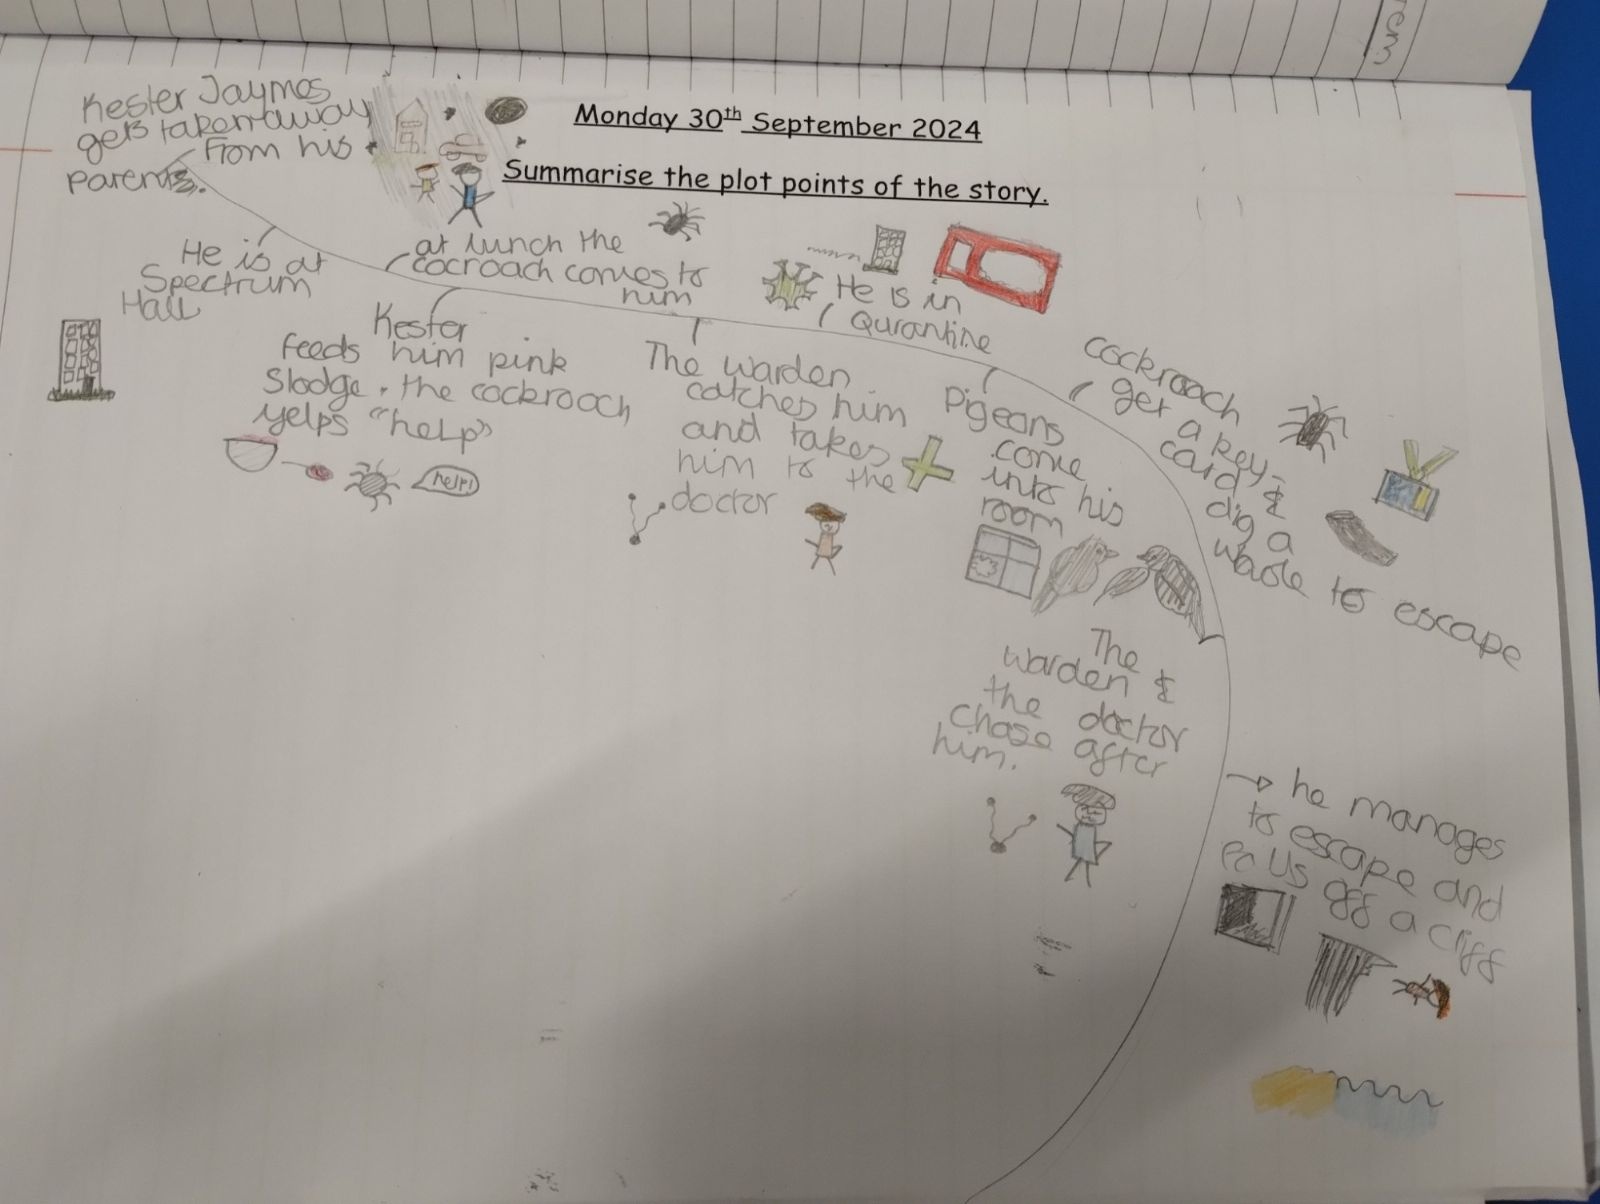 Monday 30th September 2024
Summarise the plot points of the story.
Kester Jaymes
gets taken away
from his
parents.
He is at
Spectrum
Hall
at lunch the
cocroach comes to
him
Kester
feeds him pink
Slodge. the cockroach
yelps "help"
help!
The warden
catches him
and takes
him to the
doctor
He is in
Qurantine
Pigeons
come
into his
room
cockroach
get a key-
card &
dig a
whole to escape
The
warden &
the doctor
chase after
him.
he manages
to escape and
off a cliff